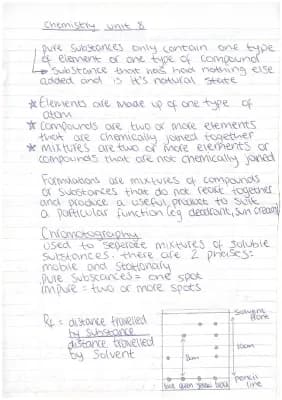 chemistry unit 8
pure substances only contain one type
of element or one type of compound
substance that has had nothing else
added and is it's natural state
★ Elements are made up of one type of
atom
★ compounds are two or more elements
that are chemically joined together
★ mixtures are two or more elements or
compounds that are not chemically joined
Formulations are mixtures of compounds
or substances that do not react together
and produce a useful product to suite
a particular function (eg deodrant, sun cream)
Chromatography
used to seperate mixtures of soluble
substances. there are 2 phases:
mobile and stationary
pure substances = one spot
impure = two or more spots
Rf = distance travelled
by substance
distance travelled
by solvent
solvent
front
10cm
8cm
pencil
line